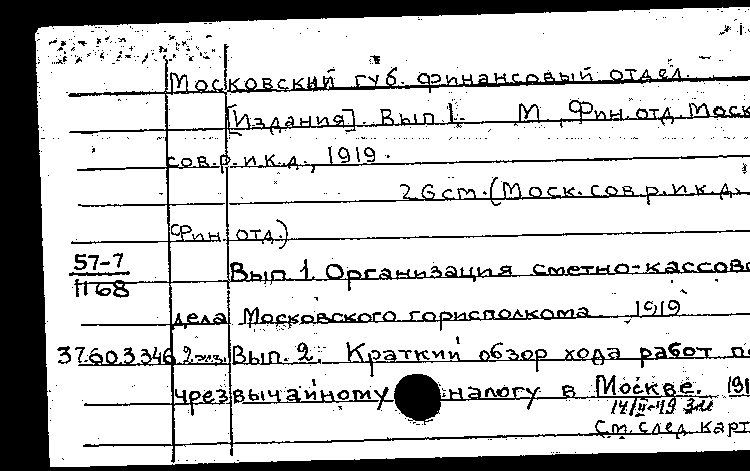 Московский губ. финансовый отдел.
[Издания]. Вып 1. М, Фин. отд. Моск
сов.р.и.к.д., 1919.
26 cm. (Моск. сов р.и.к.д.
Фин. отд.)
57-7 Вып 1. Организация сметно-кассово
1168
дела Московского горисполкома. 1919
37.603.346 2 экз. Вып. 2. Краткий обзор хода работ по
чрезвычайному налогу в Москве. 191
См. след. карт